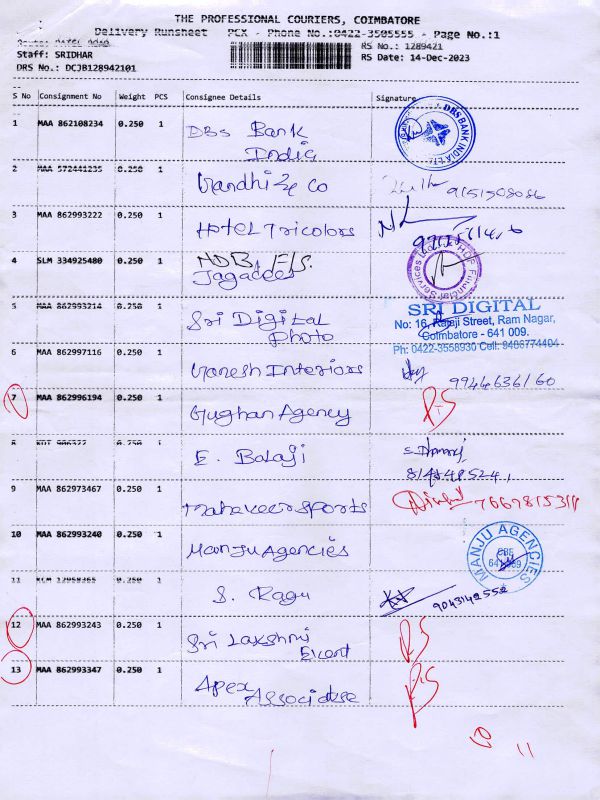 THE PROFESSIONAL COURIERS, COIMBATORE
Delivery Runsheet PCX - Phone No.:0422-3505555 - Page No.:1
RS No.: 1289421
Staff: SRIDHAR
RS Date: 14-Dec-2023
DRS No.: DCJB128942101
S No Consignment No Weight PCS Consignee Details Signature
1 MAA 862108234 0.250 1 DBS Bank
India
DBS BANK INDIA LTD
2 MAA 572441235 0.250 1 Gandhi & Co
3 MAA 862993222 0.250 1 Hotel Tricolors
4 SLM 334925480 0.250 1 HDB
Jagadees
Financial Services
5 MAA 862993214 0.250 1 Sri Digital
Photo
SRI DIGITAL
No: 16, Rajaji Street, Ram Nagar,
Coimbatore - 641 009.
Ph: 0422-3558930 Cell: 8466774404
6 MAA 862997116 0.250 1 Ganesh Interiors
9944636160
7 MAA 862996194 0.250 1 Gughan Agency
8 0.250 1 E. Balaji
9 MAA 862973467 0.250 1 Mahaveer Sports
10 MAA 862993240 0.250 1 Manju Agencies
MANJU AGENCIES
CBE
11 0.250 1 S. Ragu
9043142552
12 MAA 862993243 0.250 1 Sri Lakshmi
13 MAA 862993347 0.250 1 Apex
Associates
11